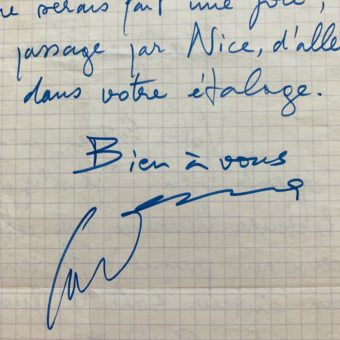 me serais fait une joie,
passage par Nice, d'alle
dans votre étalage.
Bien à vous